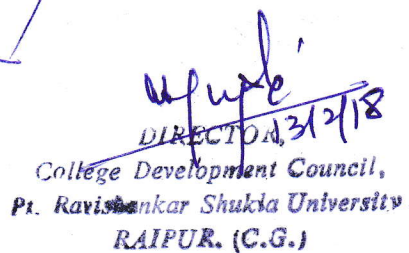 13/2/18
DIRECTOR,
College Development Council,
Pt. Ravishankar Shukla University
RAIPUR. (C.G.)